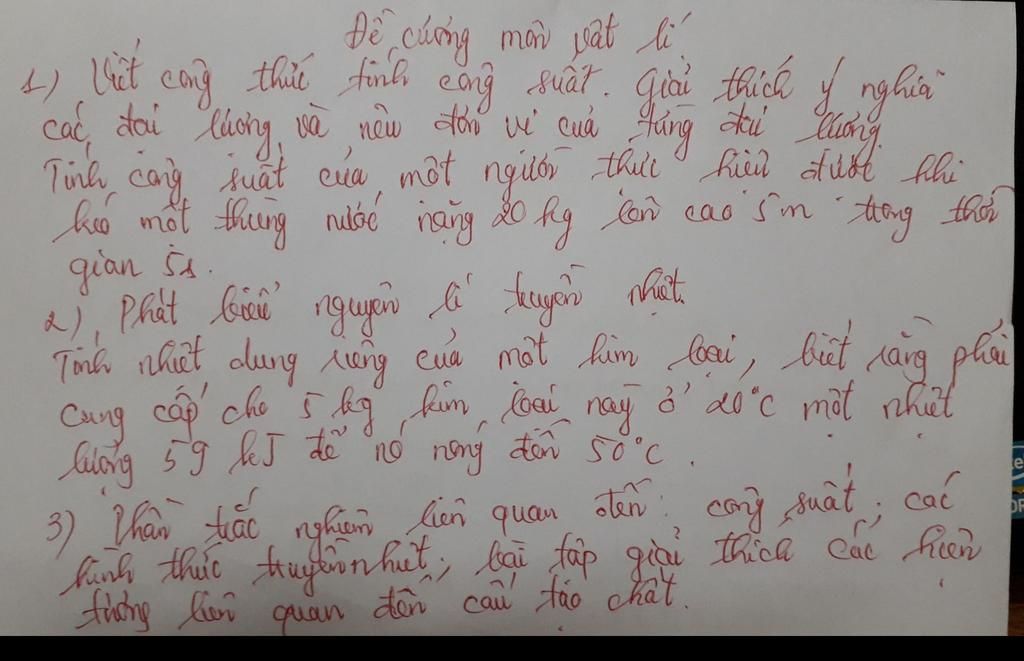 Đề cương môn vật lí
1) Viết công thức tính công suất. Giải thích ý nghĩa
các đại lượng và nêu đơn vị của từng đại lượng
Tính công suất của một người thực hiện được khi
kéo một thùng nước nặng 20 kg lên cao 5m trong thời
gian 5s.
2), Phát biểu nguyên lí truyền nhiệt.
Tính nhiệt dung riêng của một kim loại, biết rằng phải
cung cấp cho 5 kg kim loại này ở 20°C một nhiệt
lượng 59 kJ để nó nóng đến 50°C.
3) Phần trắc nghiệm liên quan đến: công suất; các
hình thức truyền nhiệt; bài tập giải thích các hiện
tượng liên quan đến cấu tạo chất.